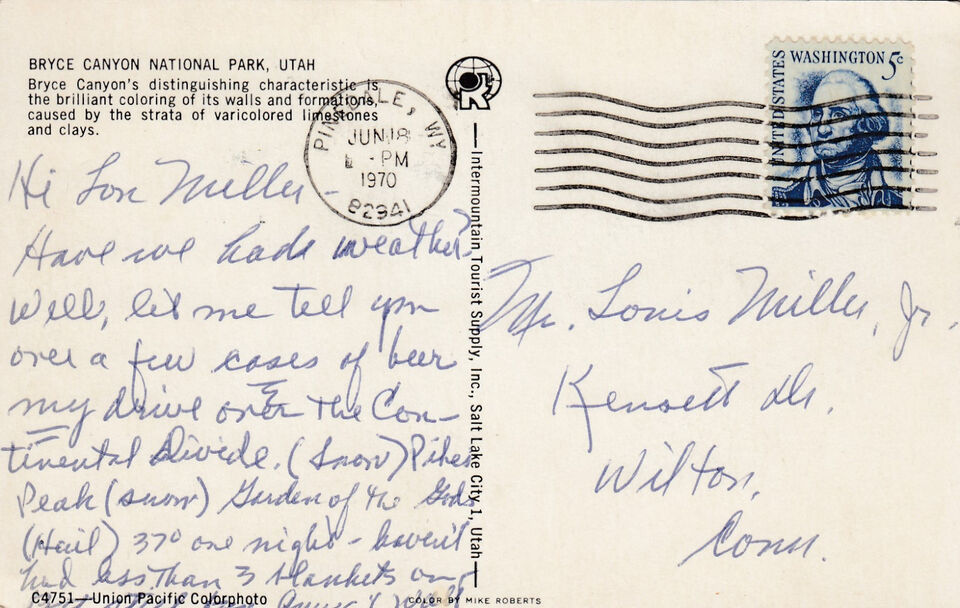 BRYCE CANYON NATIONAL PARK, UTAH
Bryce Canyon's distinguishing characteristic is
the brilliant coloring of its walls and formations,
caused by the strata of varicolored limestones
and clays.
PINEDALE, WY
JUN 18
PM
1970
82941
UNITED STATES
WASHINGTON 5c
Hi Lou Miller -
Have we hade weather?
Well, let me tell you
over a few cases of beer
my drive over the Con-
tinental Divide. (snow) Pikes
Peak (snow) Garden of the Gods
(Hail) 37° one night - haven't
had less than 3 blankets on
Intermountain Tourist Supply, Inc., Salt Lake City 1, Utah
Mr. Louis Miller, Jr.
Kensett Dr.
Wilton,
Conn.
C4751—Union Pacific Colorphoto
COLOR BY MIKE ROBERTS